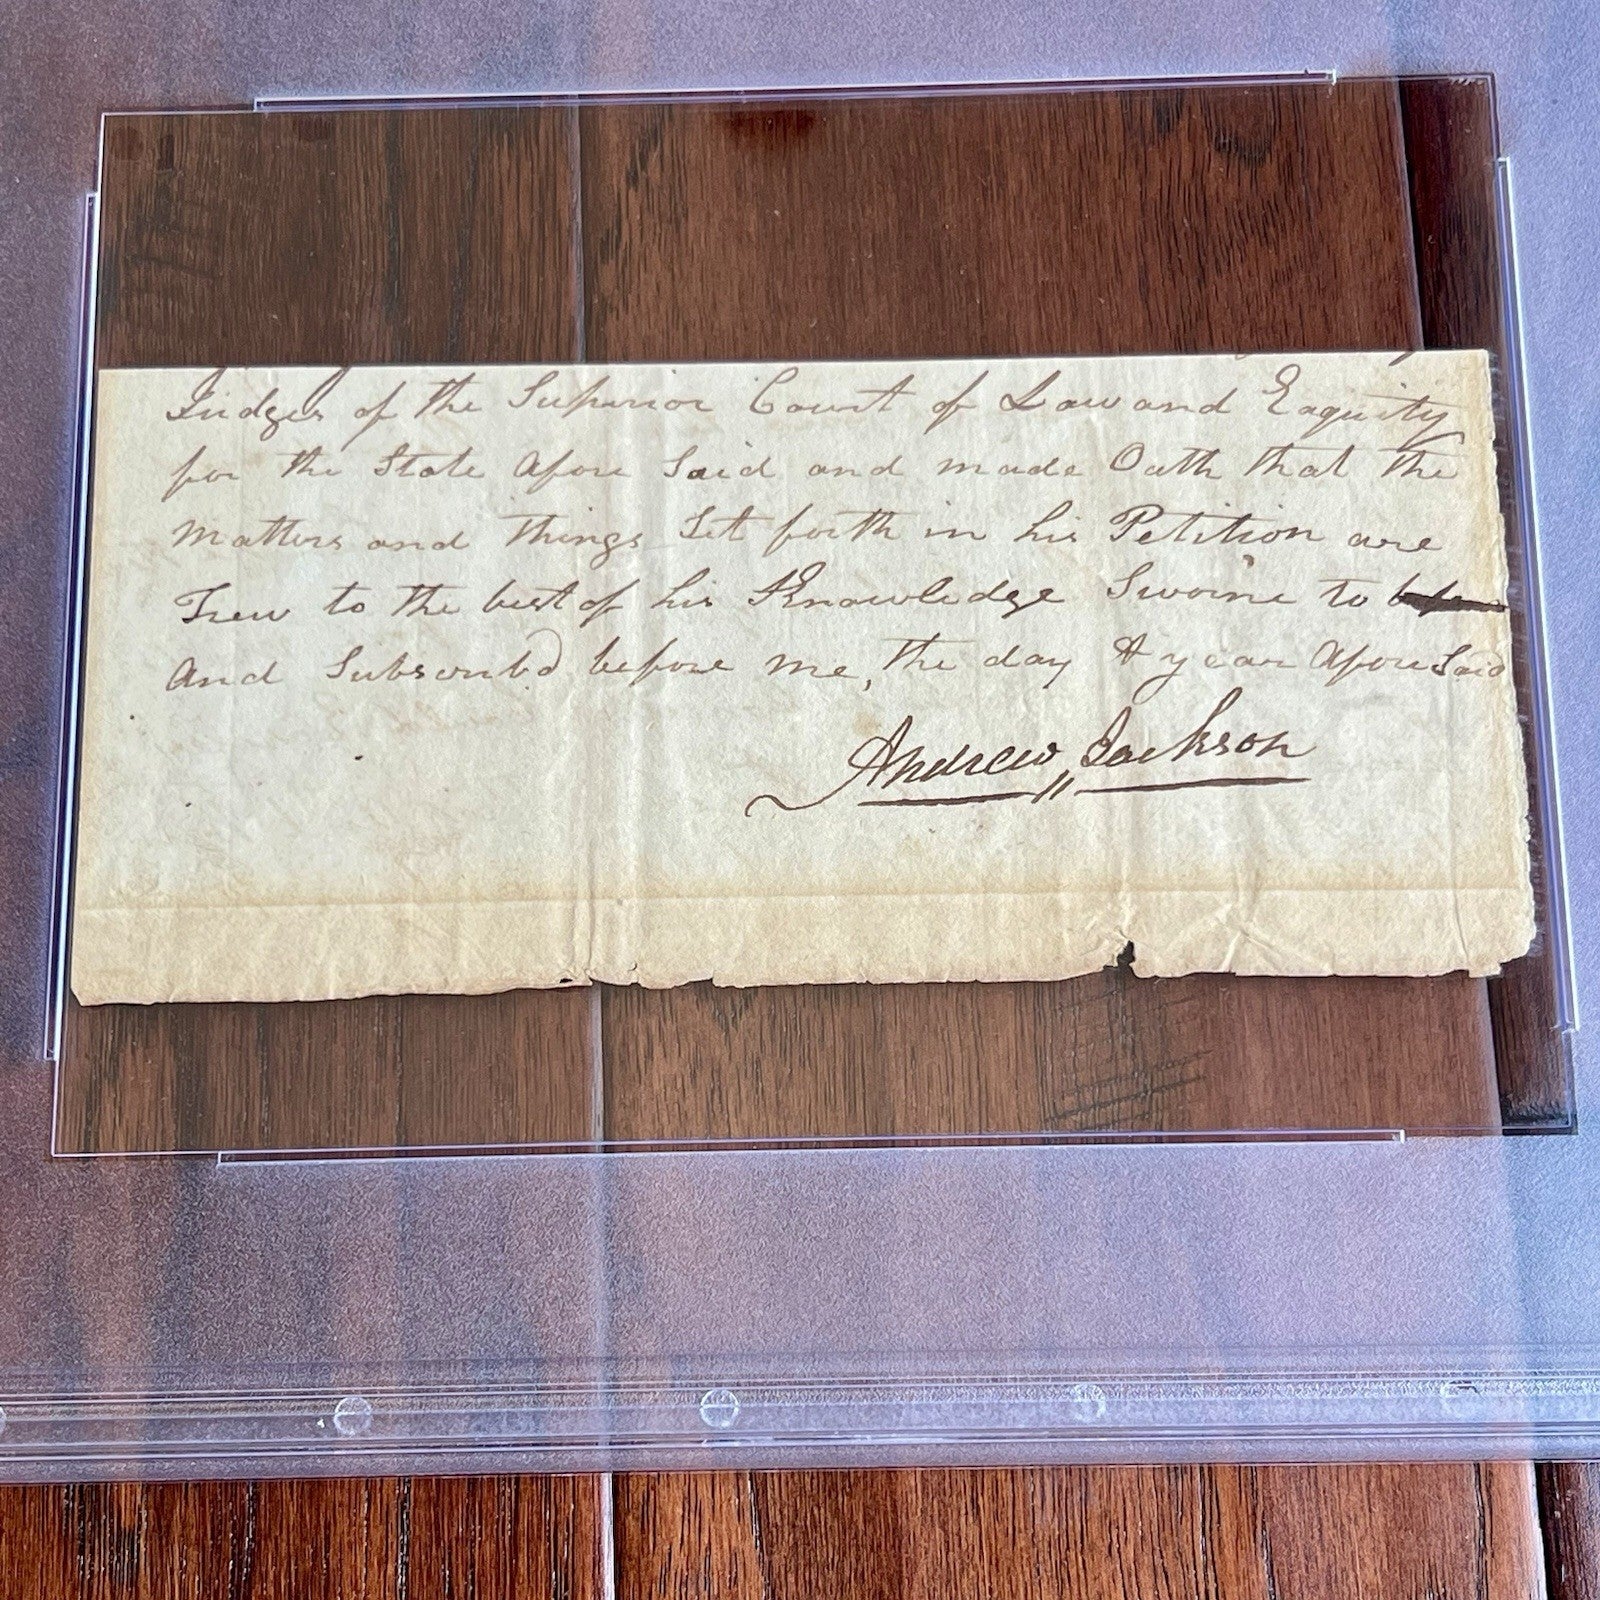 Judges of the Superior Court of Law and Eaquity
for the State afore Said and made Oath that the
matters and things Set forth in his Petition are
Trew to the best of his Knowledge Sworne to
And Subscrib'd before me, the day & year afore Said
Andrew Jackson